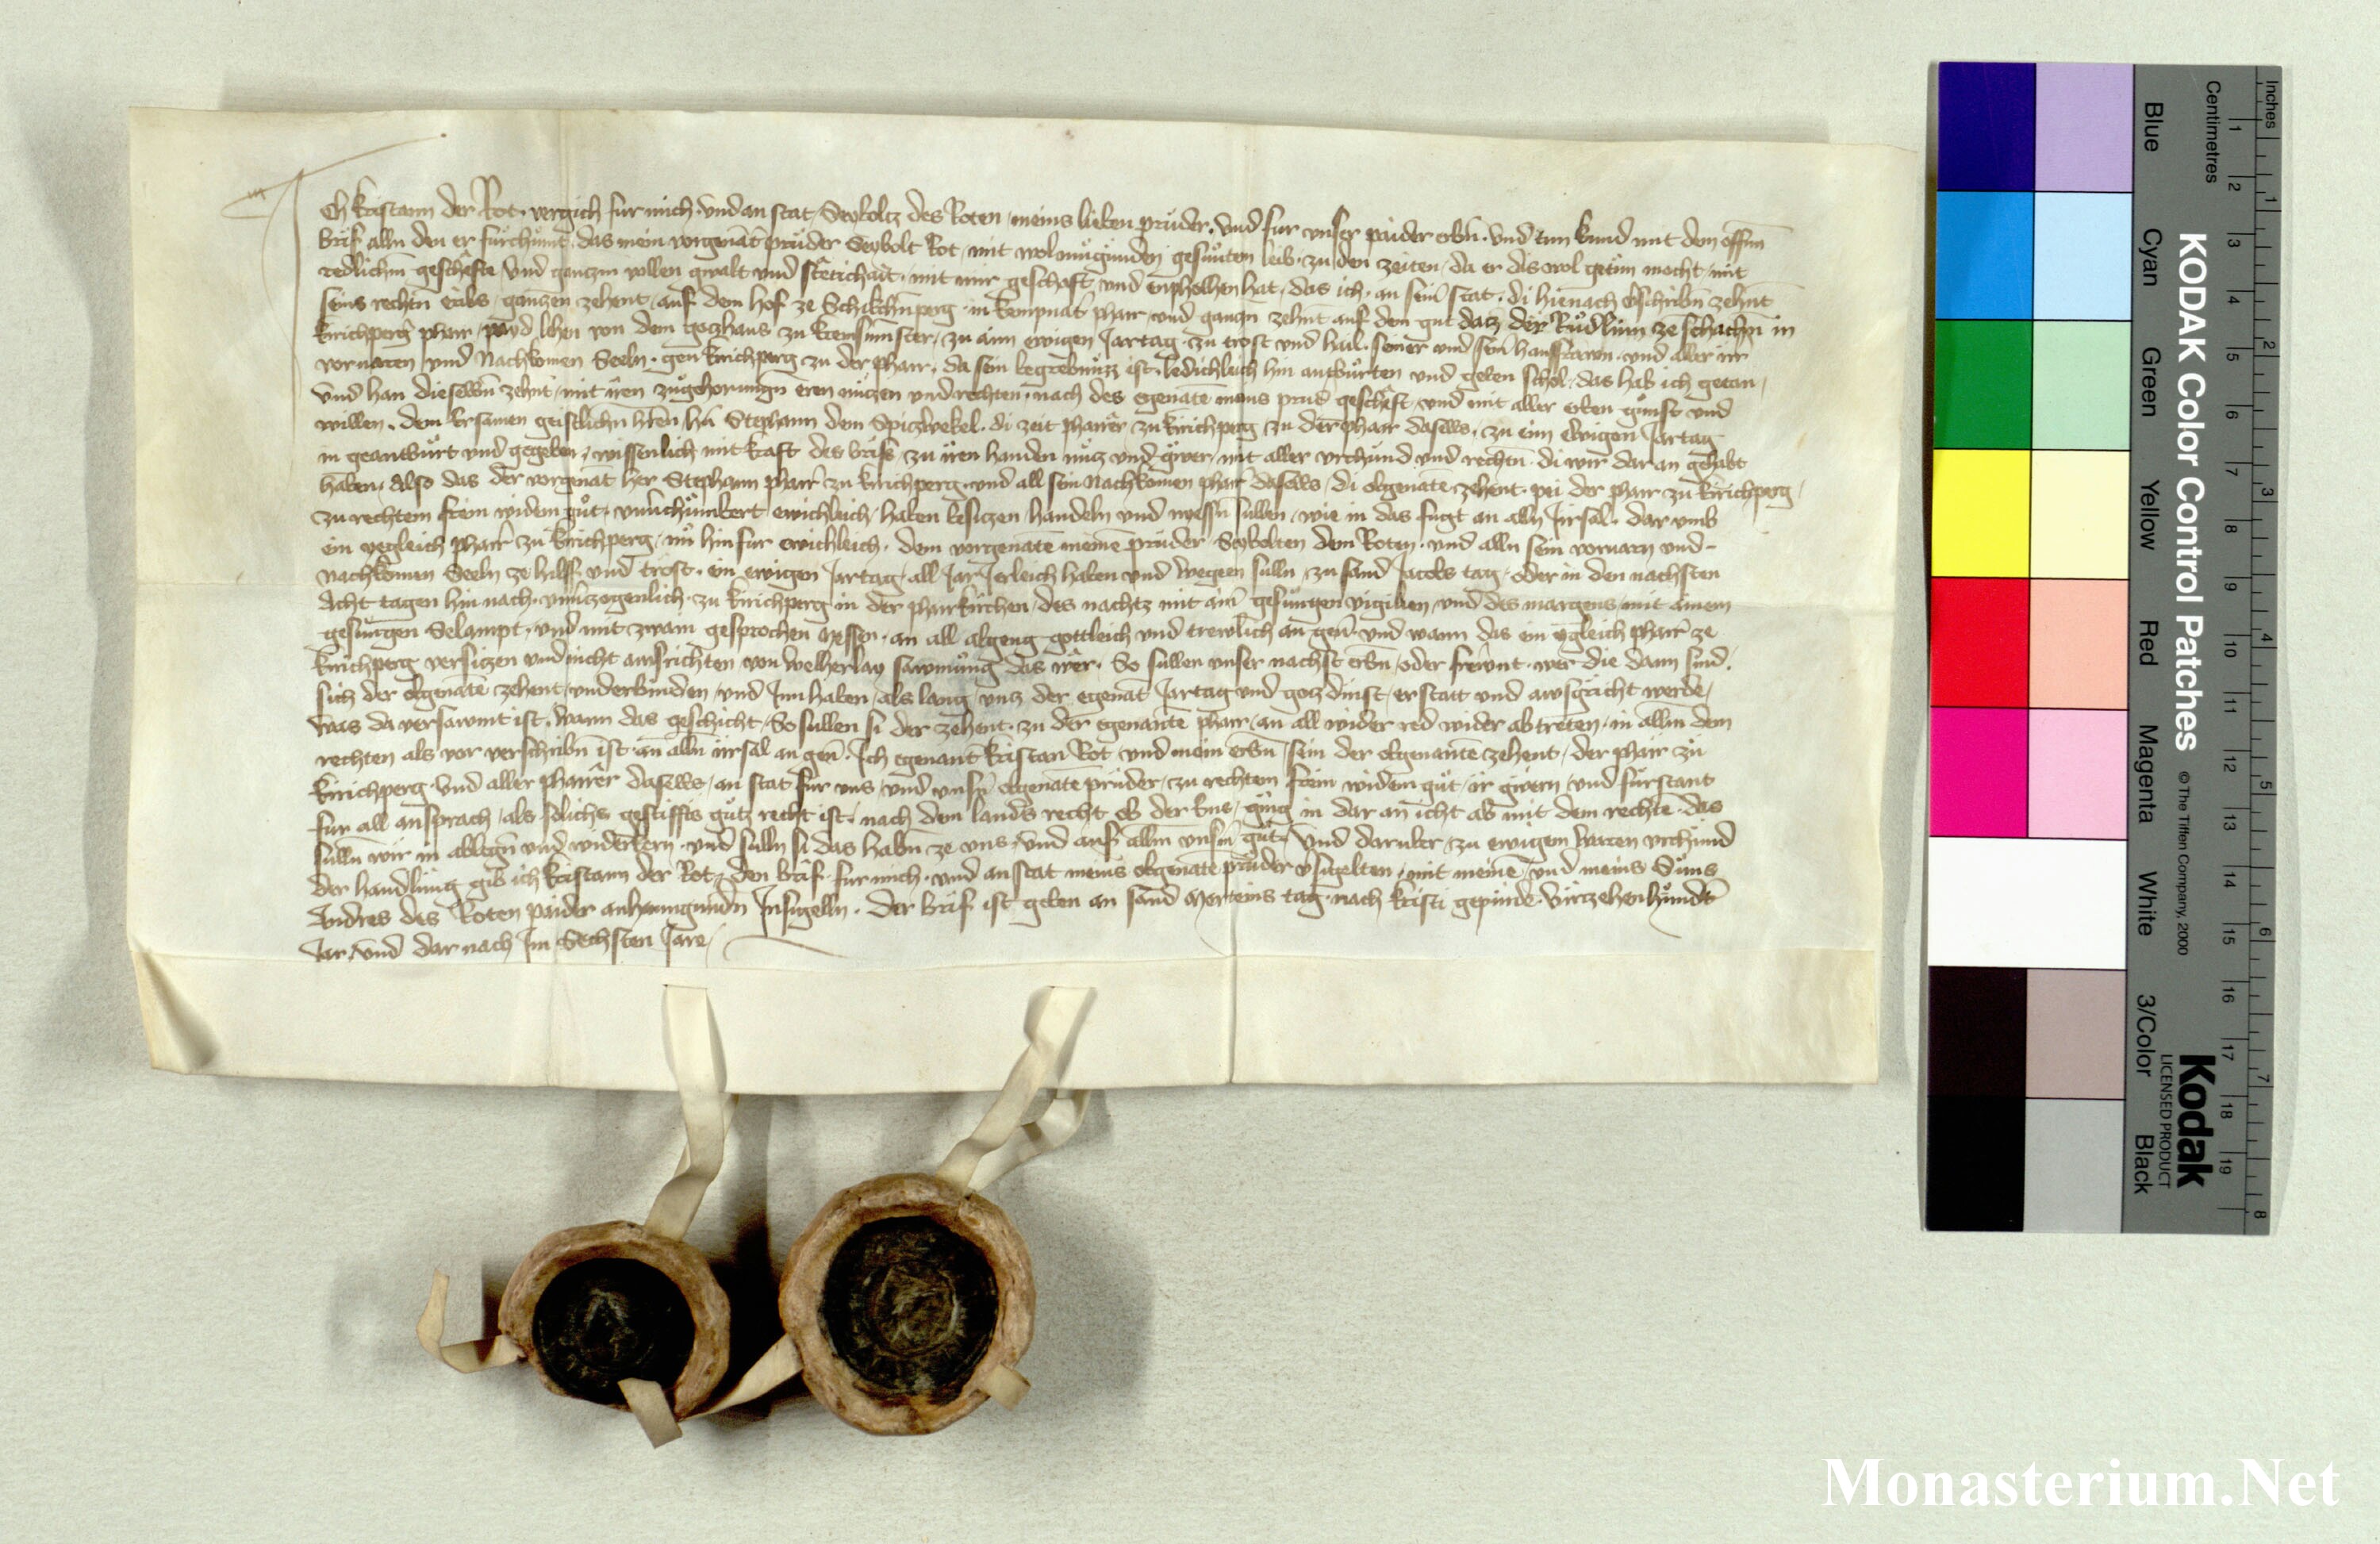 Ich kristann der Rot vergich fur mich und an stat Seyboltz des Roten meins lieben pruder und fur unser paider erbn und tun kund mit dem offnn
brief alln den er furchumt das mein vorgenāt pruder Seybolt Rot mit wolmugunden gesunten leib zu den zeiten da er dis wol getun mocht mit
redlichm geschefte und ganczm vollen gwalt und stetichait mit mir geschaft und enpholhen hat das ich an seiner stat di hienach verschribn zehnt
seins rechtn erbs ganzen zehent auf dem hof ze Schikchnperg in kempnat pharr und ganczn zehnt auf dem gut datz der Rudlinn ze schachn in
kirichperg pharr payd lehen von dem gotzhaus zu kremsmunster zu aim ewigen Jartag zu trost und hail seiner und seinr hausfrawn und aller irr
vorvarn und Nachkomen Seeln gen kirichperg zu der pharr da sein begrebnuzz ist ledichleich hin antwurten und geben schol das hab ich getan
und han dieselbn zehnt mit iren zugehorungn eren nuczen und rechten nach des egenāte meins prud geschefft und mit aller erben gunst und
willen dem Ersamen geistlichn hren hn Stephann dem Spiczwekel di zeit pharrer zu kirichperg zu der pharr daselbs zu eim ewigen Jartag
in geantwurt und gegeben wissenlich mit kraft des briefs zu iren handen nucz und gwer mit aller urchund und rechtn di wir dar an gehabt
haben Also das der vorgenāt her Stephann pharrer zu kirichperg und all sein Nachkomen pharrer daselbs di obgenāte zehent pei der pharr zu kirichperg
zu rechtem freim widem gut unverchumbert ewichleich haben besiczen handeln und nyessn sullen wie in das fugt an alln Irrsal dar umb
ein yegleich pharrer zu kirichperg nu hinfur ewichleich dem vorgenāte meinē pruder Seybolten dem Roten und alln sein vorvarn und
nachkomen Seeln ze hilff und trost ein ewigen Jartag all Jar Jerleich haben und begeen sulln zu sand Jacobs tag oder in den nachsten
Acht tagen hin nach unverczogenlich zu kirichperg in der pharrkirchen des nachtz mit aim gesungen vigilien und des margens mit ainem
gesungen Selampt und mit zwain gesprochen messen an all abgeng gottleich und trewlich an gever und wann das ein ygleich pharrer ze
kirichperg versiczen und nicht ausrichten von welherlay sawmung das wer So sullen unser nachst erbn oder frewnt wer die dann sind
sich der obgenāte zehent underbinden und Inn haben als lang uncz der egenāt Jartag und gotzdinst erstatt und ausgericht werde
was da versawmt ist wann das geschicht So sullen si der zehent zu der egenante pharr an all wider red wider abtreten in allm dem
rechten als vor verschribn ist an alln irrsal an gever Ich egenant kristan Rot und mein erbn sein der obgenante zehent der pharr zu
kirichperg und aller pharrer daselbs an stat fur uns und unsern obgenāte pruder zu rechtem freim widem gut ir gwern und furstant
fur all ansprach als sölichs gestiffts gutz recht ist nach dem landsrecht ob der Ens gieng in dar an icht ab mit dem rechte das
sulln wir in ablegn und widerkern und sulln si das habn ze uns und auf allm unserm gut Und daruber zu ewigem waren urchund
der handlung gib ich kristann der Rot den brief fur mich und anstat meins obgenāte pruder versigelten mit meinē und meins Suns
Andres des Roten paider anhanngundn Insigelln Der brief ist geben an sand Merteins tag nach kristi gepurde virzehenhundert
Jar und dar nach Im Sechsten Jare
KODAK Color Control Patches
© The Tiffen Company, 2000
Kodak
LICENSED PRODUCT
Inches
Centimetres
Blue
Cyan
Green
Yellow
Red
Magenta
White
3/Color
Black
1 2 3 4 5 6 7 8
1 2 3 4 5 6 7 8 9 10 11 12 13 14 15 16 17 18 19
Monasterium.Net